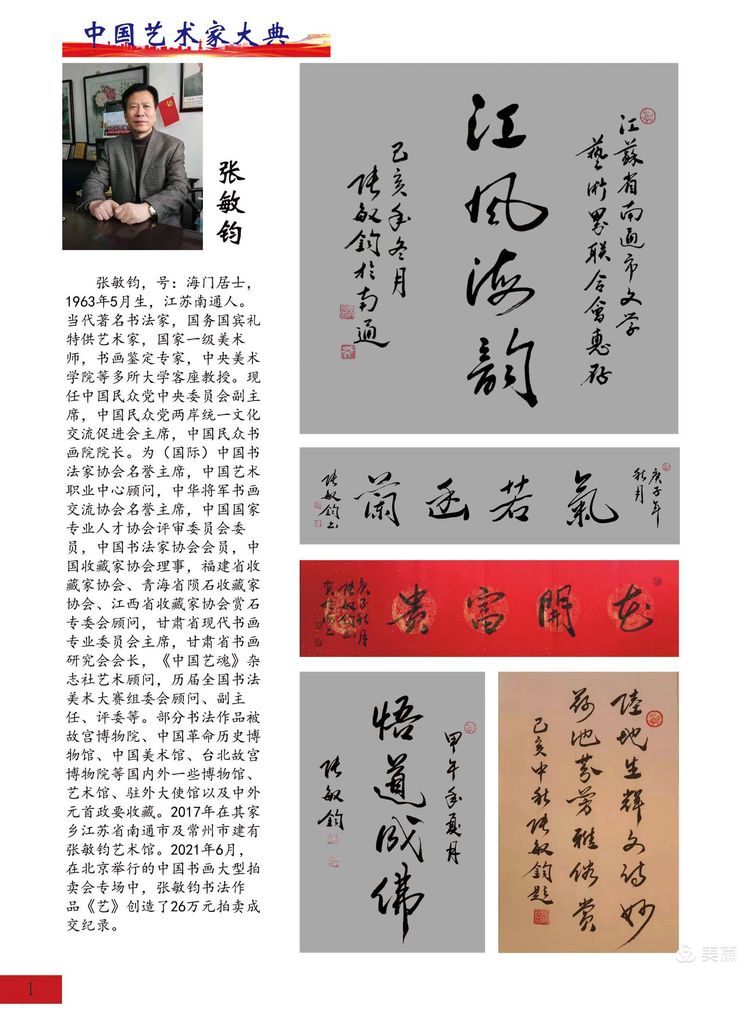 中国艺术家大典
张敏钧
张敏钧，号：海门居士，
1963年5月生，江苏南通人。
当代著名书法家，国务国宾礼
特供艺术家，国家一级美术
师，书画鉴定专家，中央美术
学院等多所大学客座教授。现
任中国民众党中央委员会副主
席，中国民众党两岸统一文化
交流促进会主席，中国民众书
画院院长。为（国际）中国书
法家协会名誉主席，中国艺术
职业中心顾问，中华将军书画
交流协会名誉主席，中国国家
专业人才协会评审委员会委
员，中国书法家协会会员，中
国收藏家协会理事，福建省收
藏家协会、青海省陨石收藏家
协会、江西省收藏家协会赏石
专委会顾问，甘肃省现代书画
专业委员会主席，甘肃省书画
研究会会长，《中国艺魂》杂
志社艺术顾问，历届全国书法
美术大赛组委会顾问、副主
任、评委等。部分书法作品被
故宫博物院、中国革命历史博
物馆、中国美术馆、台北故宫
博物院等国内外一些博物馆、
艺术馆、驻外大使馆以及中外
元首政要收藏。2017年在其家
乡江苏省南通市及常州市建有
张敏钧艺术馆。2021年6月，
在北京举行的中国书画大型拍
卖会专场中，张敏钧书法作
品《艺》创造了26万元拍卖成
交纪录。
江蘇省南通市文学
藝術界联合會惠存
江风海韵
己亥年冬月
张敏钧於南通
庚子年
秋月
氣若幽蘭
张敏钧书
花開富贵
庚子秋月
张敏钧书
甲午年夏月
悟道成佛
张敏钧
陸地生輝文诗妙
砚池芬芳雅俗赏
己亥中秋张敏钧题
1
美篇